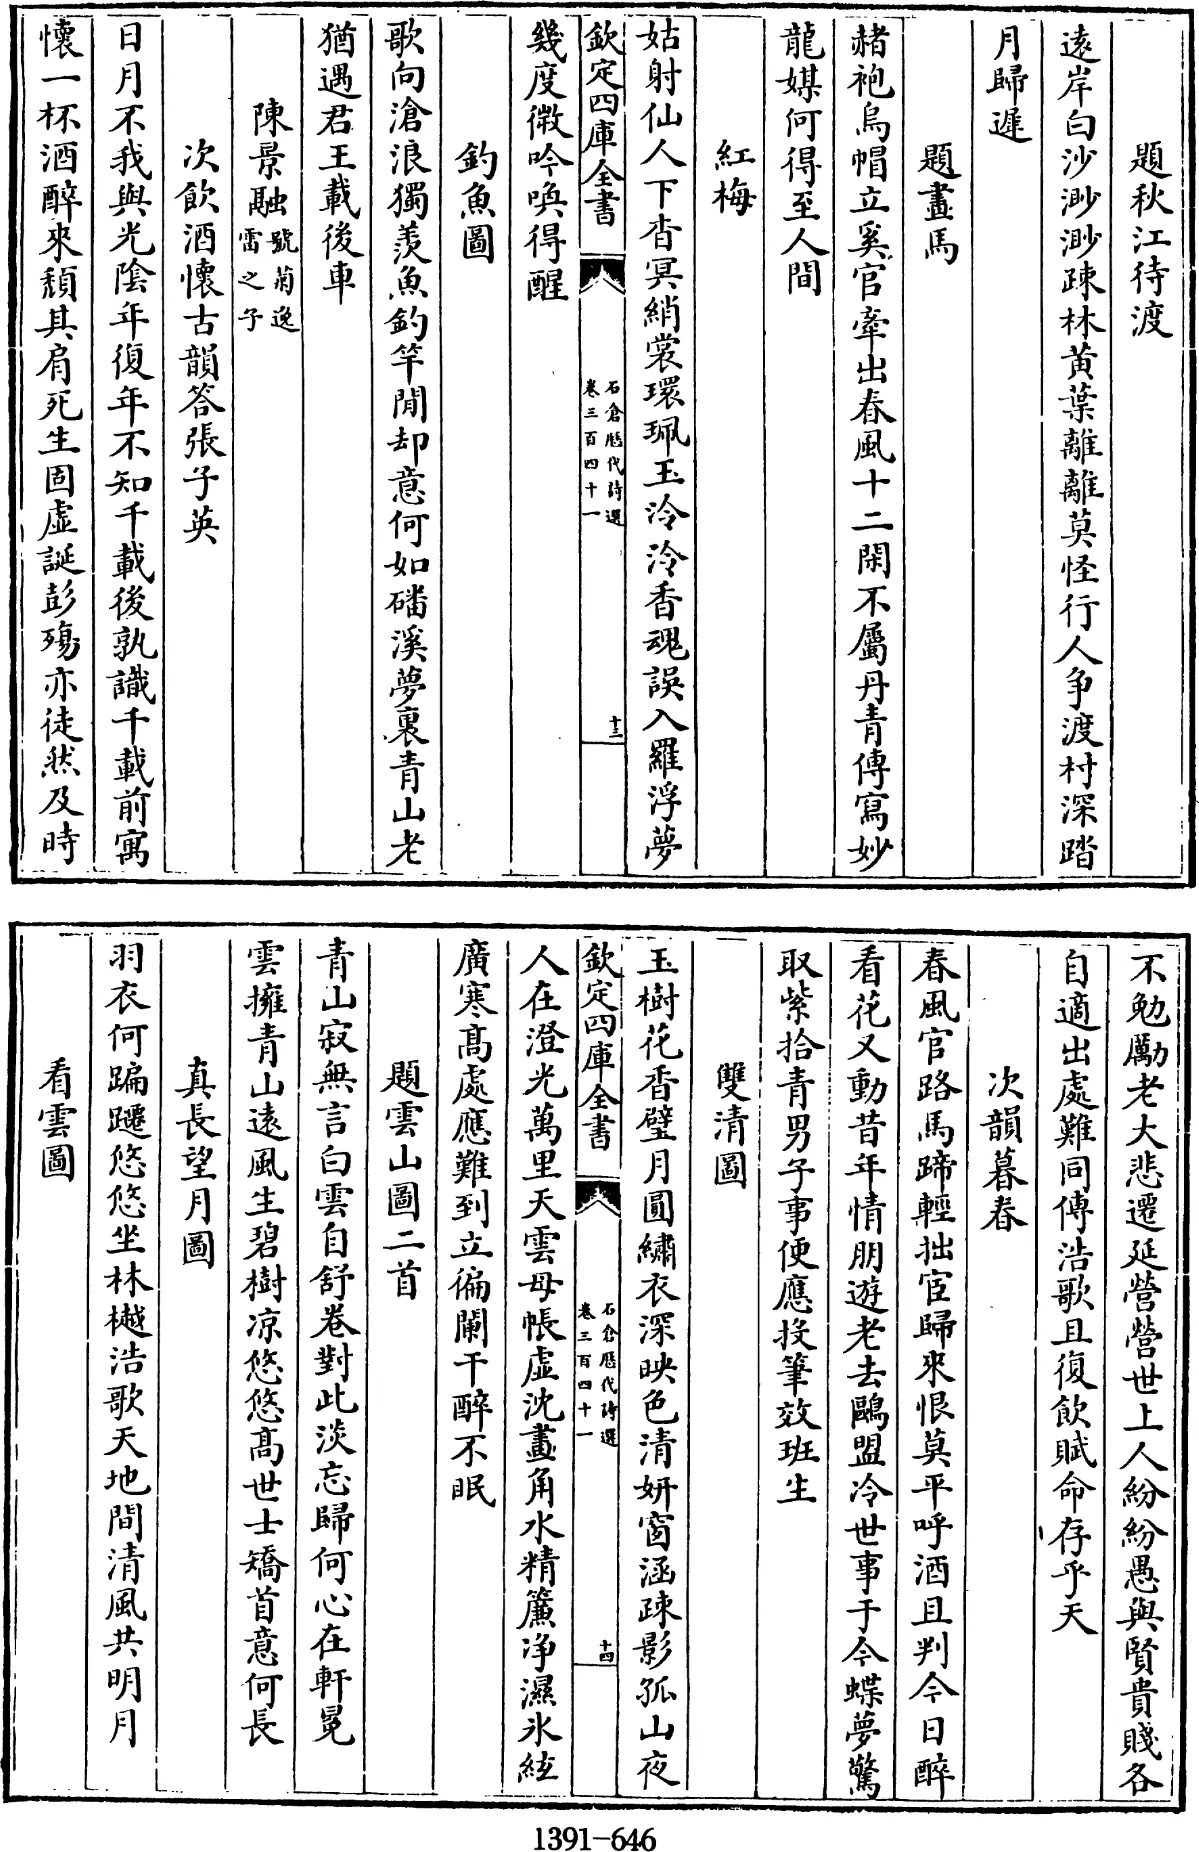 題秋江待渡
遠岸白沙渺渺疎林黄葉離離莫怪行人争渡村深踏
月歸遲
題畫馬
赭袍烏帽立奚官牽出春風十二閑不屬丹青傳寫妙
龍媒何得至人間
紅梅
姑射仙人下杳冥綃裳環珮玉泠泠香魂誤入羅浮夢
欽定四庫全書
石倉歴代詩選
卷三百四十一
十三
幾度微吟喚得醒
釣魚圖
歌向滄浪獨羨魚釣竿閒却意何如磻溪夢裏青山老
猶遇君王載後車
陳景融號菊逸雷之子
次飲酒懷古韻答張子英
日月不我與光陰年復年不知千載後孰識千載前寓
懷一杯酒醉來頽其肩死生固虛誕彭殤亦徒然及時
不勉勵老大悲遷延營營世上人紛紛愚與賢貴賤各
自適出處難同傳浩歌且復飲賦命存乎天
次韻暮春
春風官路馬蹄輕拙宦歸來恨莫平呼酒且判今日醉
看花又動昔年情朋遊老去鷗盟冷世事于今蝶夢驚
取紫拾青男子事便應投筆效班生
雙清圖
玉樹花香璧月圓繡衣深映色清妍窗涵疎影孤山夜
欽定四庫全書
石倉歴代詩選
卷三百四十一
十四
人在澄光萬里天雲母帳虛沈畫角水精簾净濕氷絃
廣寒高處應難到立徧闌干醉不眠
題雲山圖二首
青山寂無言白雲自舒卷對此淡忘歸何心在軒冕
雲擁青山遠風生碧樹凉悠悠高世士矯首意何長
真長望月圖
羽衣何蹁躚悠悠坐林樾浩歌天地間清風共明月
看雲圖
1391-646